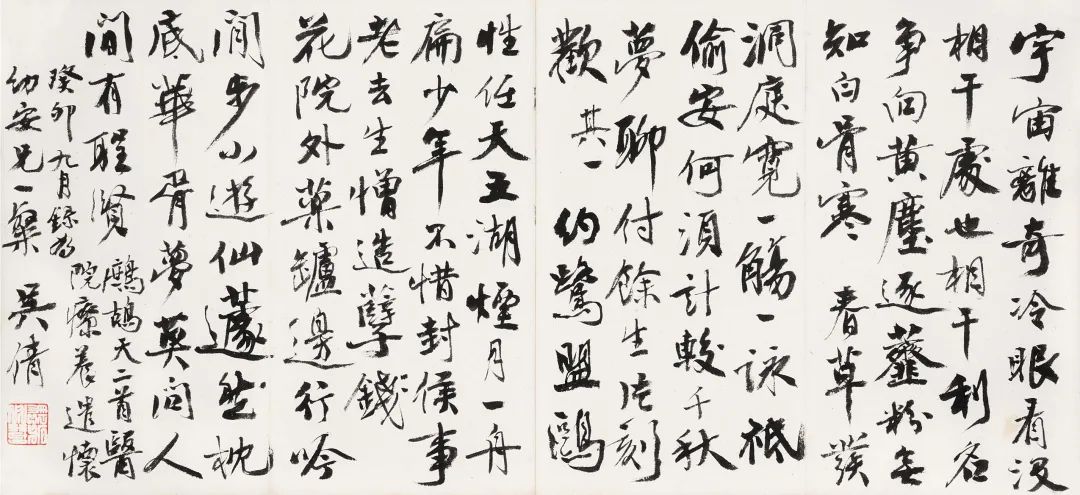 宇宙離奇冷眼看没
相干處也相干利名
争向黄塵逐虀粉無
知白骨寒 春草發
洞庭寬一觴一詠祇
偷安何須計較千秋
夢聊付餘生片刻
歡 其一 約鷺盟鷗
性任天五湖煙月一舟
扁少年不惜封侯事
老去生憎造孽錢
花院外藥罏邊行吟
閒步小遊仙蘧然枕
底華胥夢莫問人
間有聖賢 鷓鴣天二首醫
院療養遣懷
癸卯九月錄為
幼安兄一粲 吳倩